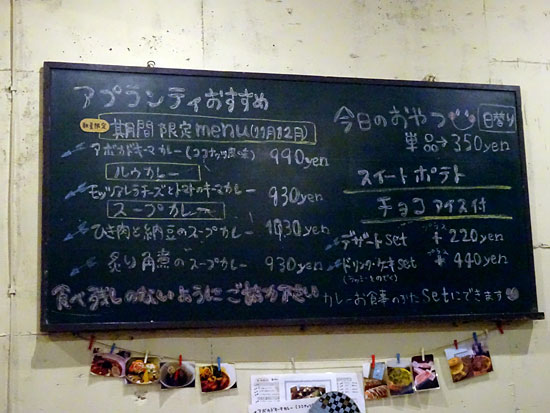 アプランティおすすめ
数量限定
期間限定menu(11月12月)
アボガドキーマカレー(ココナッツ風味) 990yen
ルゥカレー
モッツァレラチーズとトマトのキーマカレー 930yen
スープカレー
ひき肉と納豆のスープカレー 1030yen
炙り角煮のスープカレー 930yen
食べ残しのないようにご協力下さい
今日のおやつ 日替り
単品→350yen
スイートポテト
チョコアイス付
デザートset プラス 220yen
ドリンク・ケーキset プラス 440yen
(ラッシーをのぞく)
カレーお食事のかたsetにできます